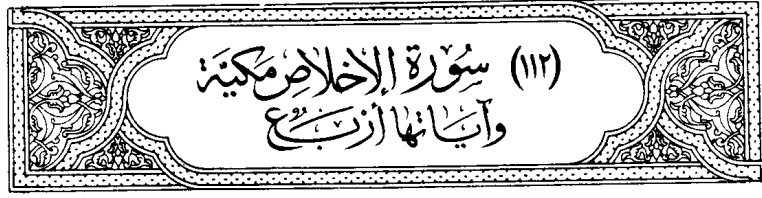 (١١٢) سُورَة الإِخْلَاصِ مَكيَّة
وَآيَاتهَا أَرْبَع